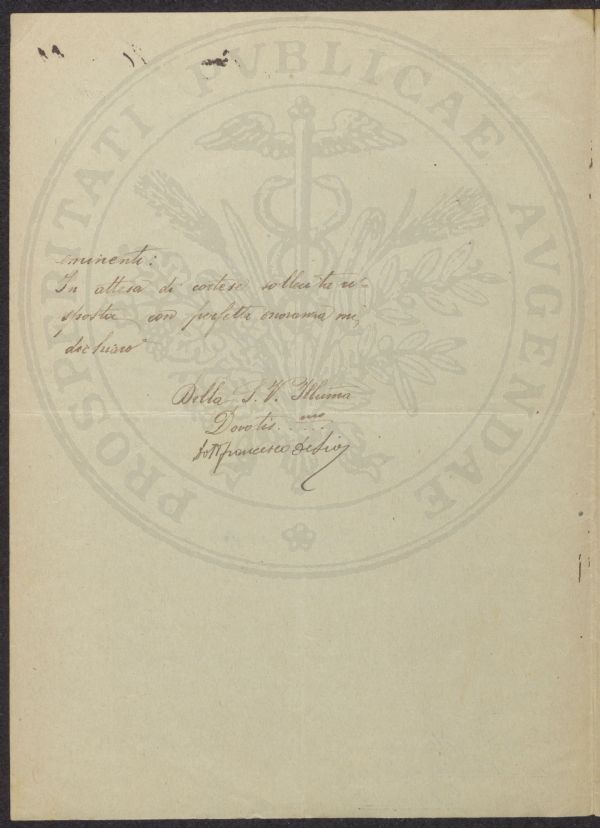 PROSPERITATI PUBLICAE AUGENDAE
eminenti:
In attesa di cortese sollecita ri-
sposta con perfetta onoranza mi
dichiaro
Della S. V. Illuma
Devotis.mo
Dott Francesco